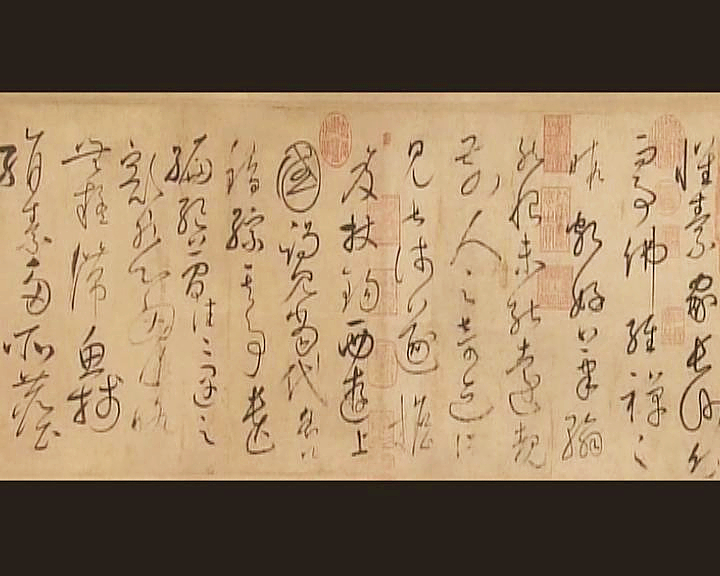 懷素家長沙幼
而事佛經禪之
暇頗好筆翰
然恨未能遠覩
前人之奇迹所
見甚淺遂擔
笈杖錫西遊上
國謁見當代名公
錯綜其事遺
編絕簡往往遇之
豁然心胸略
無疑滯魚牋
絹素多所塵